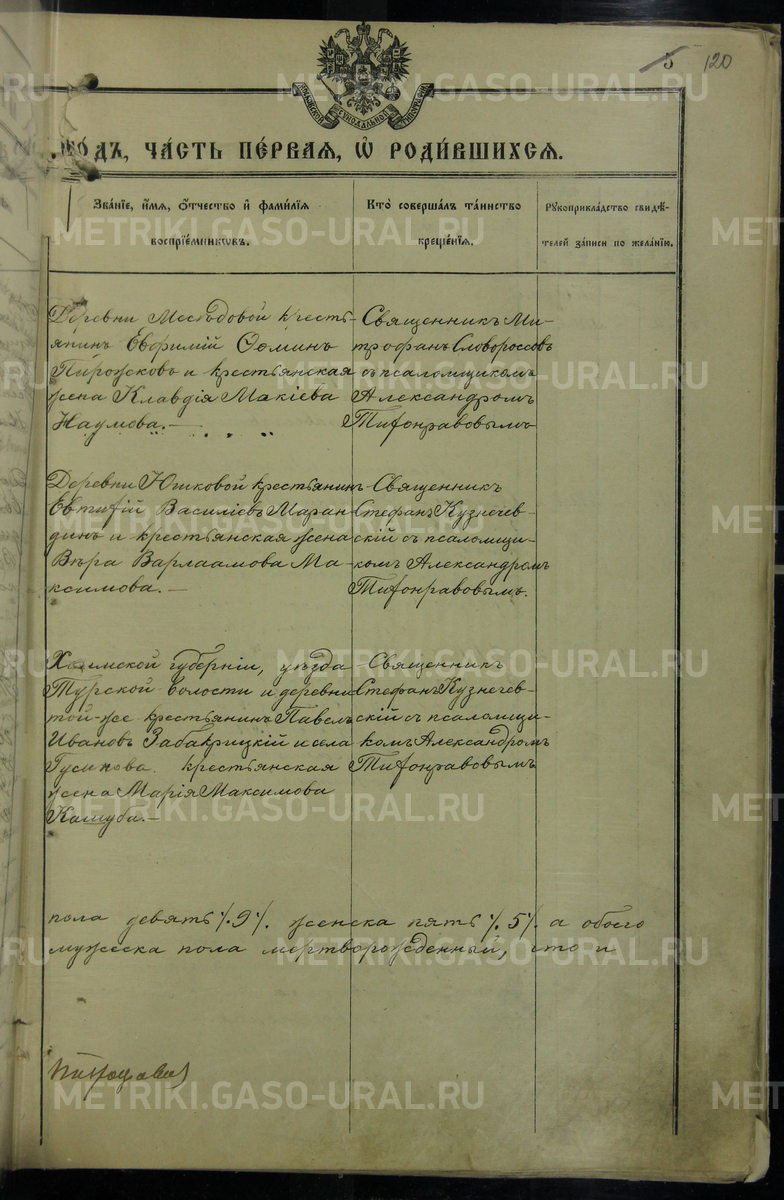 5 120
ГОДЪ, ЧАСТЬ ПЕРВАЯ, Ѡ РОДИВШИХСЯ.
Званіе, имя, отчество и фамилія
воспріемниковъ.
Кто совершалъ таинство
крещенія.
Рукоприкладство свидѣ-
телей записи по желанію.
Деревни кресть-
янинъ Евфимій Ѳоминъ
Пирожковъ и крестьянская
жена Клавдія Макіева
Наумова.—
Священникъ Ми-
трофанъ Словороссовъ
съ псаломщикомъ
Александромъ
Тихонравовымъ
Деревни Юшковой крестьянинъ
Евтихій Василіевъ Маран-
динъ и крестьянская жена
Вѣра Варлаамова Ма-
ксимова.—
Священникъ
Стефанъ Кузнечев-
скій съ псаломщи-
комъ Александромъ
Тихонравовымъ.
Холмской губерніи, уѣзда
Турской волости и деревни
той-же крестьянинъ Павелъ
Ивановъ Забакрицкій и села
Гусинова крестьянская
жена Марія Максимова
Кашуба.—
Священникъ
Стефанъ Кузнечев-
скій съ псаломщи-
комъ Александромъ
Тихонравовымъ
пола девять ٪.9٪. женска пять ٪.5٪. а обоего
мужеска пола мертворожденный, что и
METRIKI.GASO-URAL.RU